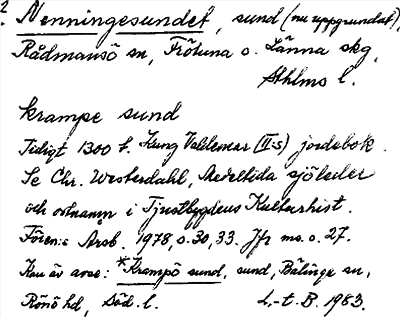 ? Nenningesundet, sund (nu uppgrundat),
Rådmansö sn, Frötuna o. Länna skg,
Sthlms l.
krampe sund
Tidigt 1300 t. Kung Valdemar (II:s) jordebok.
Se Chr. Westerdahl, Medeltida sjöleder
och ortnamn i Tjustbygdens Kulturhist.
Fören:s Årsb. 1978, s. 30, 33. Jfr ms. s. 27.
Kan äv avse: *Krampö sund, sund, Bälinge sn,
Rönö hd, Söd. l. L.-t. B. 1983.